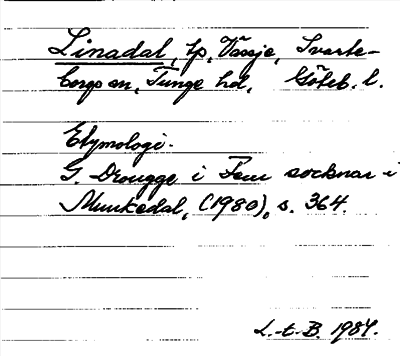 Linadal, tp, Vässje, Svarte-
borgs sn, Tunge hd, Göteb. l.
Etymologi.
G. Drougge i Fem socknar i
Munkedal, (1980), s. 364.
L.-t. B. 1984.